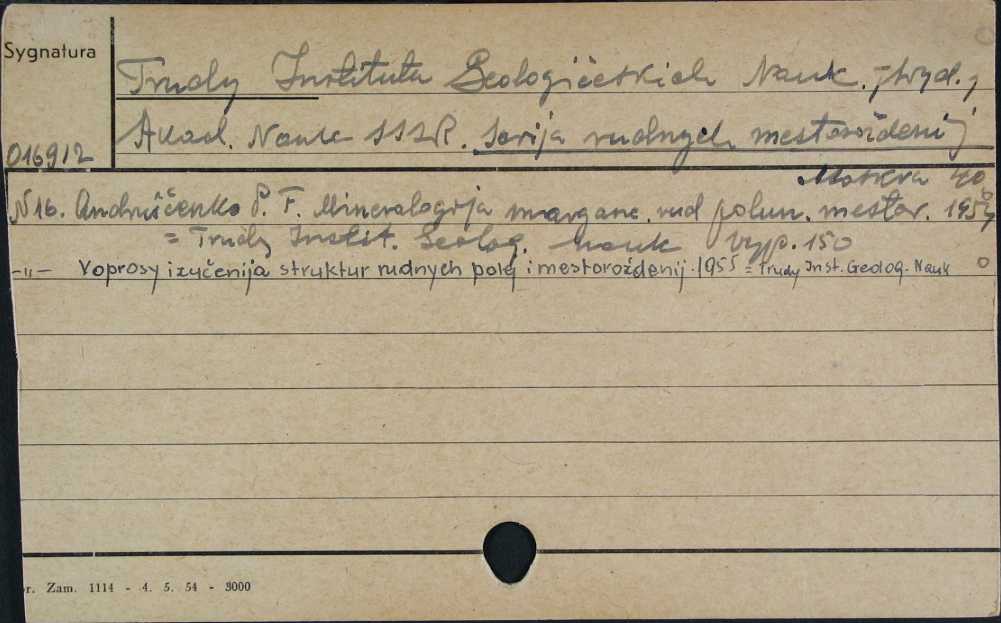 Sygnatura
Trudy Instituta Geologičeskich Nauk. /wyd.,
016912
Akad. Nauk SSSR. Serija rudnych mestoroždenij
Moskva 40
N 16. Andruščenko P. F. Mineralogija margane. rud polun. mestor. 1954
= Trudy Instit. Geolog. Nauk Vyp. 150
-„- Voprosy izučenija struktur rudnych polej i mestoroždenij. 1955 = Trudy Inst. Geolog. Nauk
r. Zam. 1114 - 4. 5. 54 - 3000